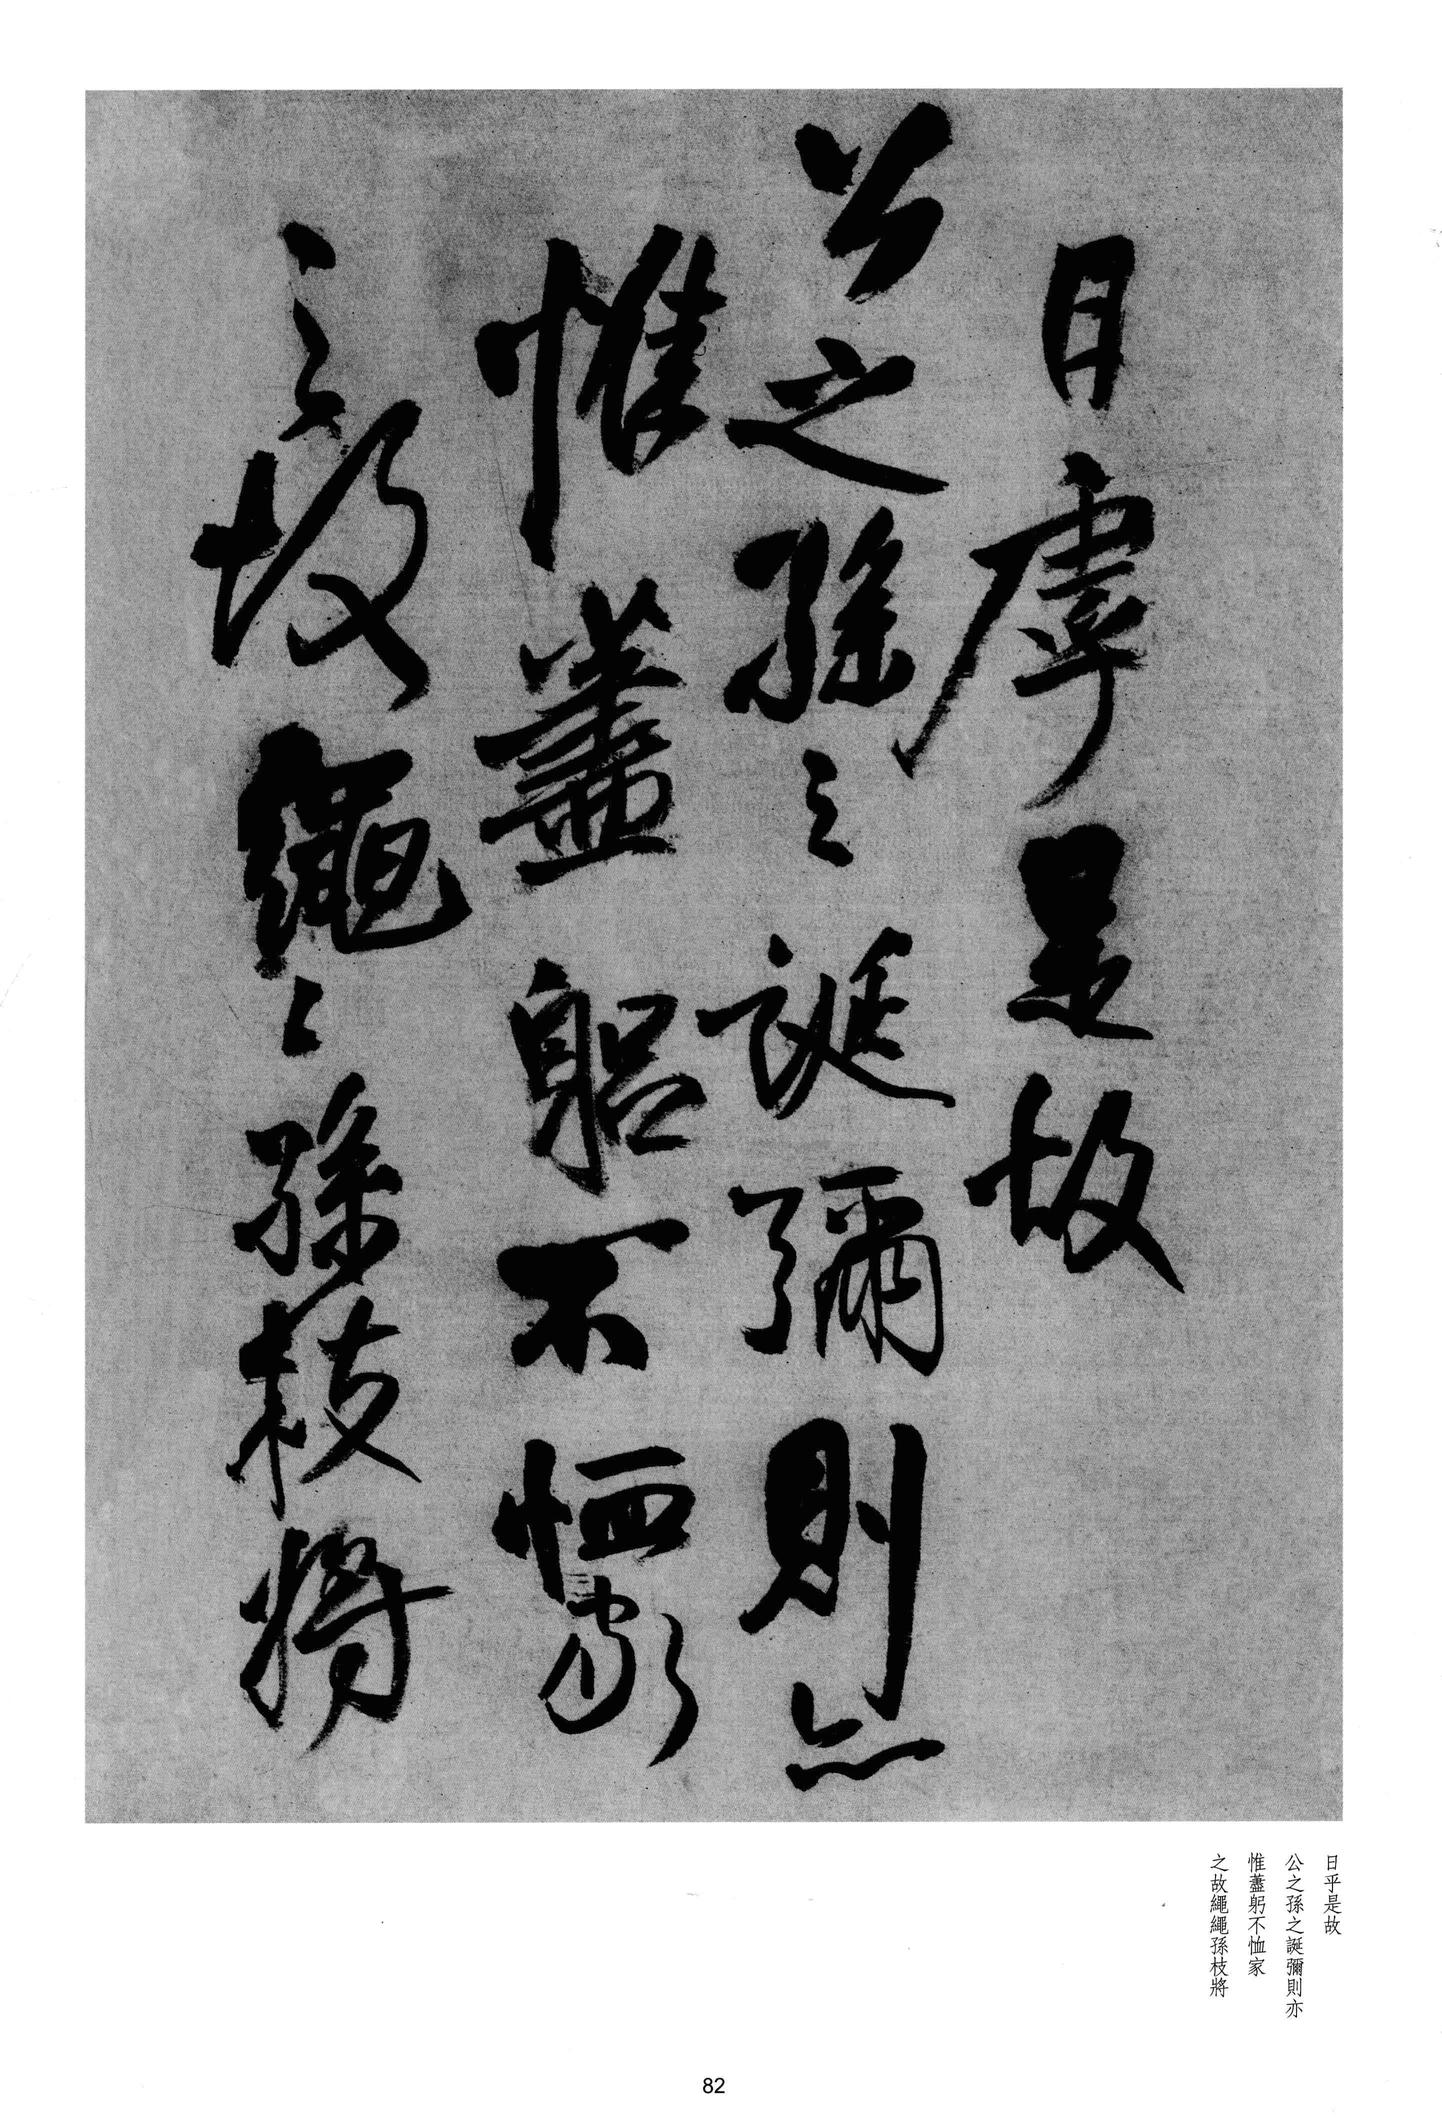 日虖是故
公之孫之誕彌則亦
惟藎躳不恤家
之故繩〻孫枝將
日乎是故
公之孫之誕彌則亦
惟藎躬不恤家
之故繩繩孫枝將
82